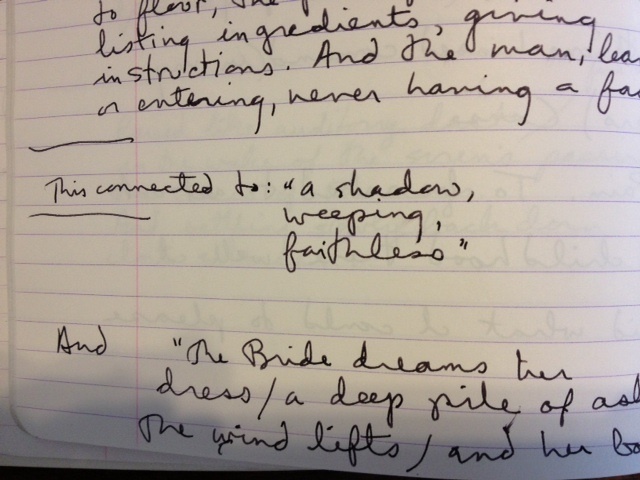 to floor, the
listing ingredients, giving
instructions. And the man, lea
or entering, never having a fa
This connected to: "a shadow,
weeping,
faithless"
And "The Bride dreams her
dress/a deep pile of ash
The wind lifts/and her bo